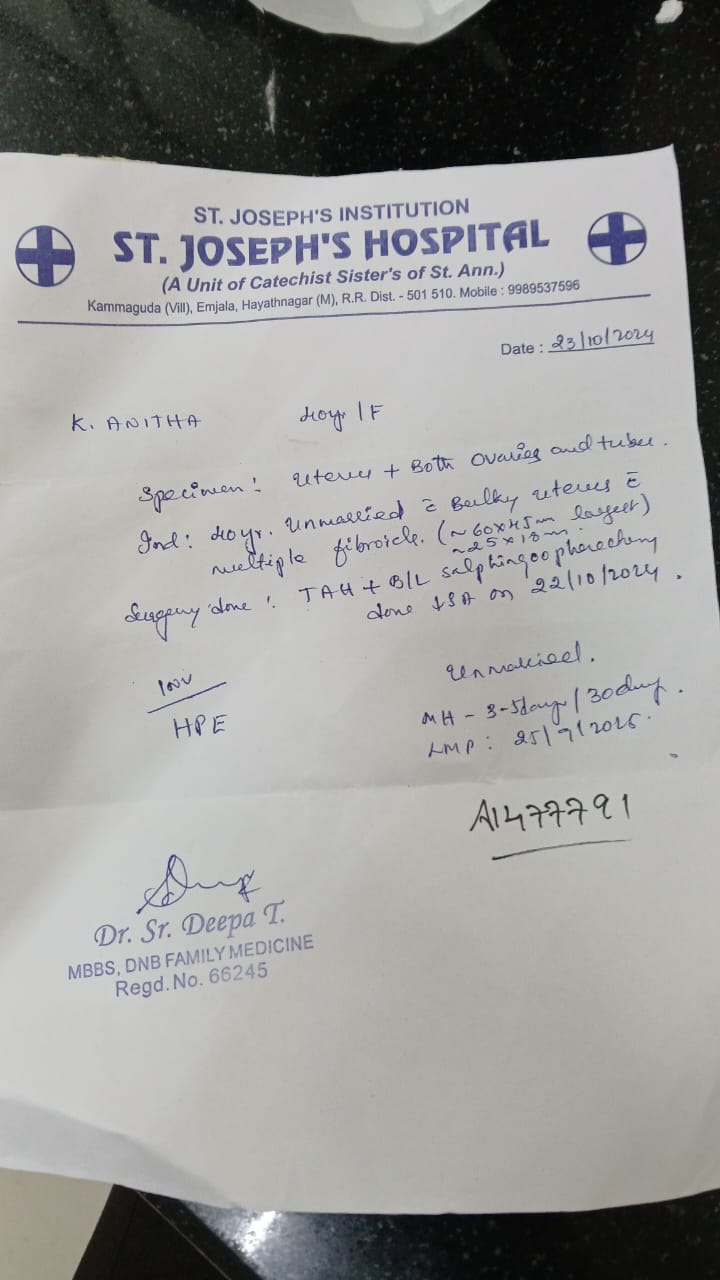 ST. JOSEPH'S INSTITUTION
ST. JOSEPH'S HOSPITAL
(A Unit of Catechist Sister's of St. Ann.)
Kammaguda (Vill), Emjala, Hayathnagar (M), R.R. Dist. - 501 510. Mobile : 9989537596
Date : 23/10/2024
K. ANITHA 40yr / F
Specimen : Uterus + Both Ovaries and tubes.
Ind : 40yr. Unmarried c̄ Bulky uterus c̄
multiple fibroids. (~60x45mm largest)
~25x18mm
Surgery done : TAH + B/L salphingoopherectomy
done ↓SA on 22/10/2024.
Inv
HPE
Unmarried.
MH - 3-5days / 30days.
LMP : 25/9/2025.
A1477791
Dr. Sr. Deepa T.
MBBS, DNB FAMILY MEDICINE
Regd. No. 66245